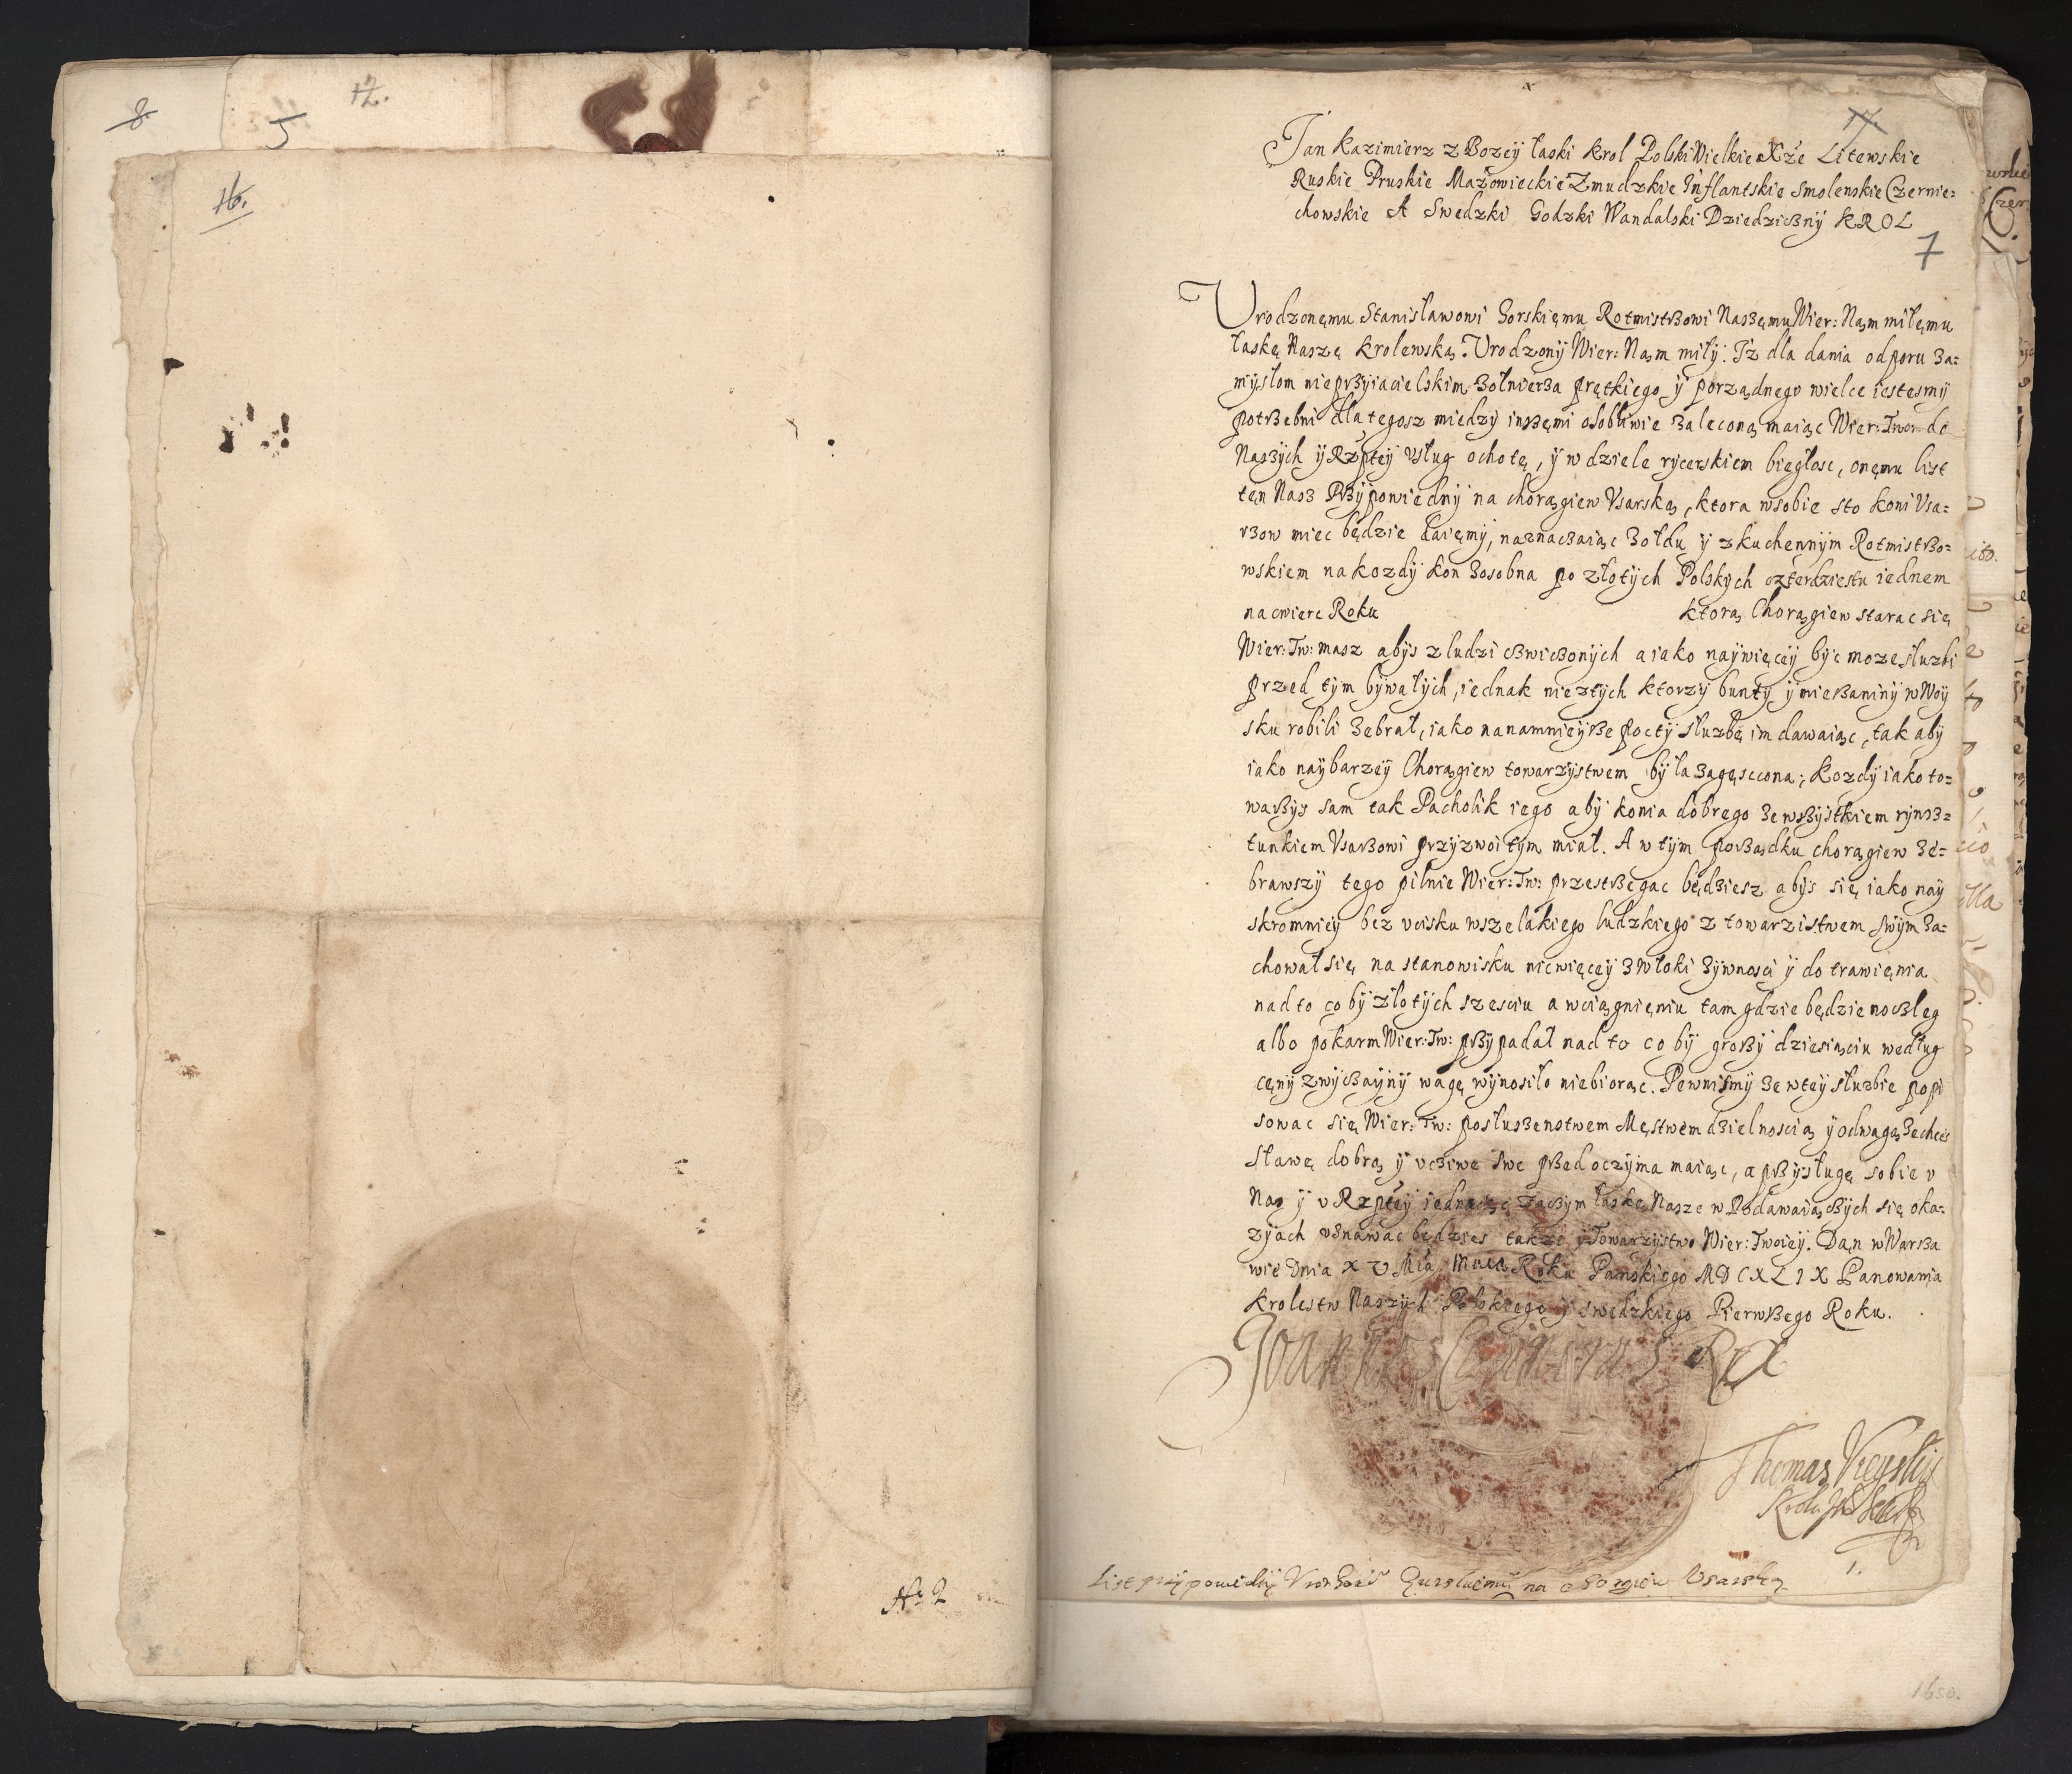 8
12.
5
16.
No 2
17.
Jan Kazimierz z Bozey łaski Krol Polski Wielkie Xże Litewskie
Ruskie Pruskie Mazowieckie Zmudzkie Inflantskie Smolenskie Czernie:
chowskie A Swedzki Godzki Wandalski Dziedziczny KROL
7
Vrodzonemu Stanisławowi Gorskięmu Rotmistrzowi Naszęmu Wier: Nąm miłęmu
łaskę Naszę Krolewską. Vrodzony Wier: Nąm miły. Iż dla dania odporu za=
mysłom nieprzyiacielskim żołnierza prętkiego y porządnego wielce iestesmy
potrzebni dlategosz miedzy inszęmi osobliwie zaleconą maiąc Wier: Twoi do
Naszych y Rzptey vsług ochotę, y w dziele rycerskiem biegłosc, onęmu list
tęn Nasz Przypowiedny na chorągiew Vsarską, ktora wsobie sto koni Vsa=
rzow miec będzie daięmy, naznaczaiąc żołdu y z kuchennym Rotmistrzo=
wskiem na kozdy kon zosobna po złotych Polskych czterdziestu iednem
na cwierc Roku ktorą Chorągiew starac się
Wier: Tw: masz abys z ludzi czwiczonych a iako naywięcey byc moze służbi
przed tym bywałych, iednak nieztych ktorzy bunty y mieszaniny w Woy
sku robili zebrał, iako nanamnieysze pocty służbę im dawaiąc, tak aby
iako naybarzey Chorągiew towarzystwem była zagęsccona; Kozdy iako to=
warzysz sam tak Pacholik iego aby konia dobrego zewszystkiem rynsz=
tunkiem Vsarzowi przyzwoitym miał. A w tym porządku chorągiew ze=
brawszy tego pilnie Wier: Tw: przestrzegac będziesz abys się iako nay
skromniey bez vcisku wszelakiego ludzkiego z towarzistwem swym za=
chowałsię na stanowisku nicwięcey z włoki zywnosci y do trawięnia
nad to coby złotych szesciu a wciągnięniu tam gdzie będzie noczleg
albo pokarm Wier: Tw: przypadał nad to co by groszy dziesiąciu według
cęny zwyczayny wagę wynosiło niebiorąc. Pewnismy ze wtey służbie popi
sowac się Wier: Tw: posłuszenstwem Męstwem dzielnoscią y odwagą zechces
Sławę dobrą y vcziwe swe przed oczyma maiąc, a przysługę sobie v
Nas y v Rzptey iednaiąc zaczym łaskę Nasze w Podawaiączych się oka=
zyach vznawac będzies takze y Towarzystwo Wier: Twoiey. Dąn w Warsza
wie Dnia XV Mca Maia Roku Panskięgo MDCXLIX Panowania
Krolestw Naszych Polskiego y Swedzkiego Pierwszego Roku.
Joannes Casimirus Rex
Thomas
List przypowiedny Gurskiemu na Vsarską
1.
1650.